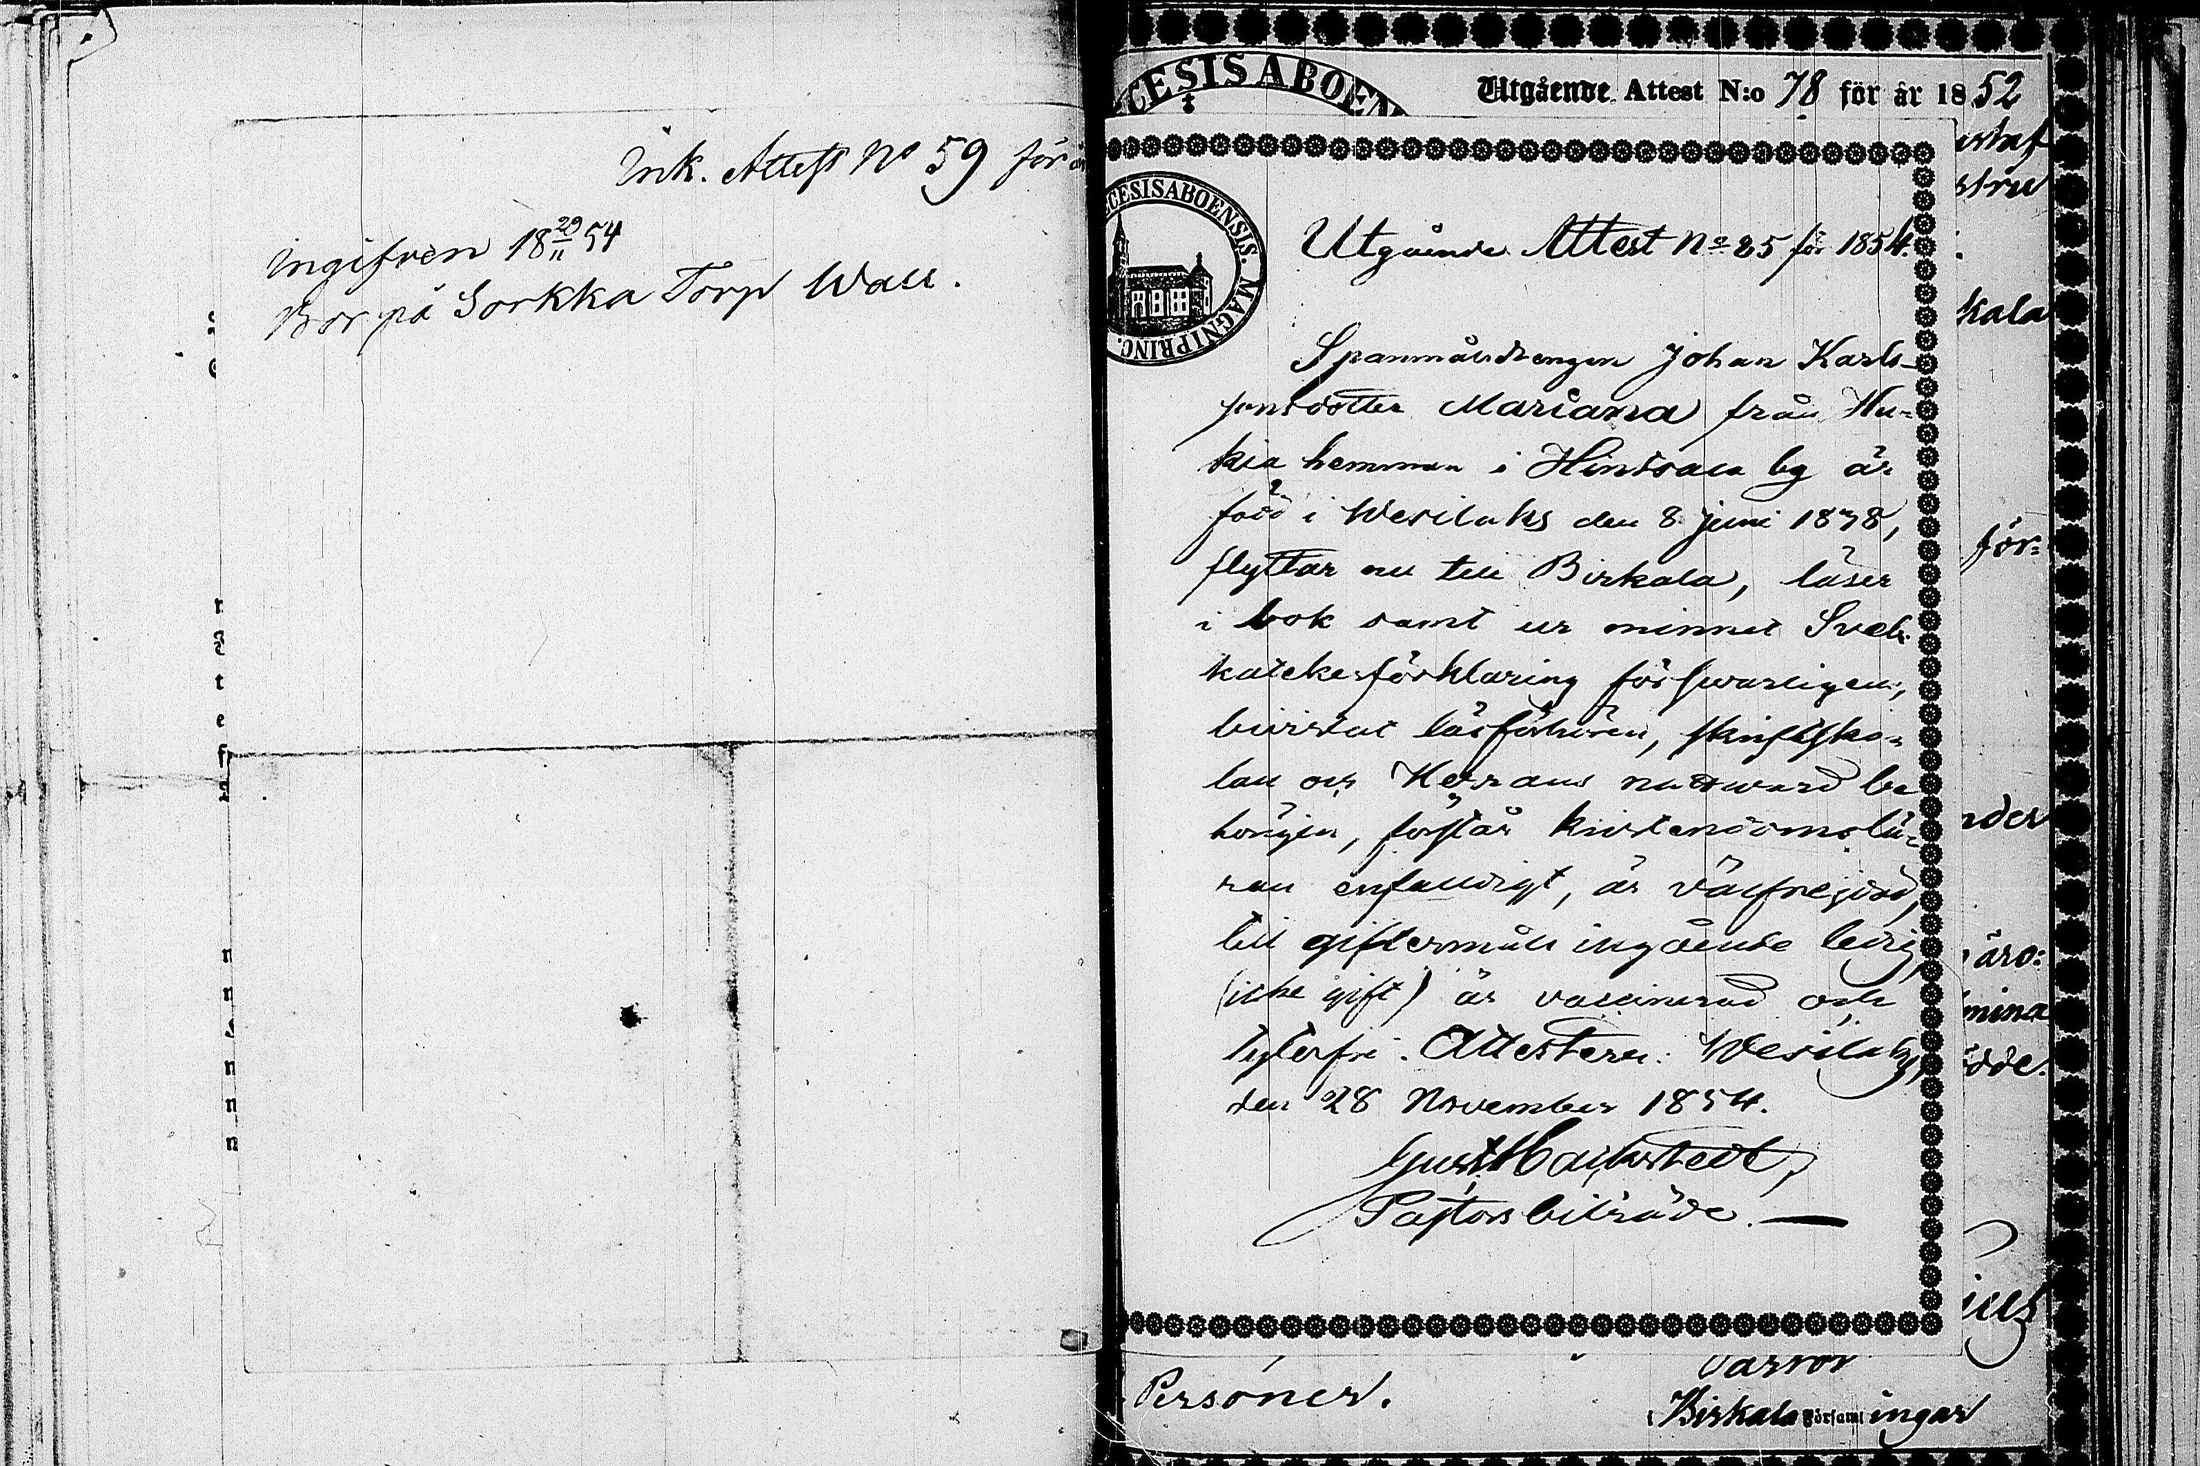 Ink. Attest No 59 för
Ingifven 18 29/11 54
Bor på Sorkka Torp Wall.
CESIS ABOEN
Utgående Attest N:o 78 för år 1852
ustaf
stru
CESIS ABOENSIS. MAGNI PRINC.
Utgående Attest No 25 för 1854.
kala
Johan Karls-
sons dotter Mariana från Hu-
kia hemman i by är
född i Wesilaks den 8 Juni 1838,
flyttar nu till Birkala, läser
i bok samt ur minnet Sveb:
katekesförklaring försvarligen,
bivistat läsförhören, skriftsko-
lan och Herrans nattward be
hörigen, förstår kristendomslä-
ran enfaldigt, är välfrejdad,
till giftermåls ingående ledig
(icke gift) är vaccinerad och
lyterfri. Attestera: Wesilaks,
den 28 November 1854.
Pastorsbiträde.
för-
nder
äro:
mina
ödde.
ius
Personer.
Birkala Församl ingar